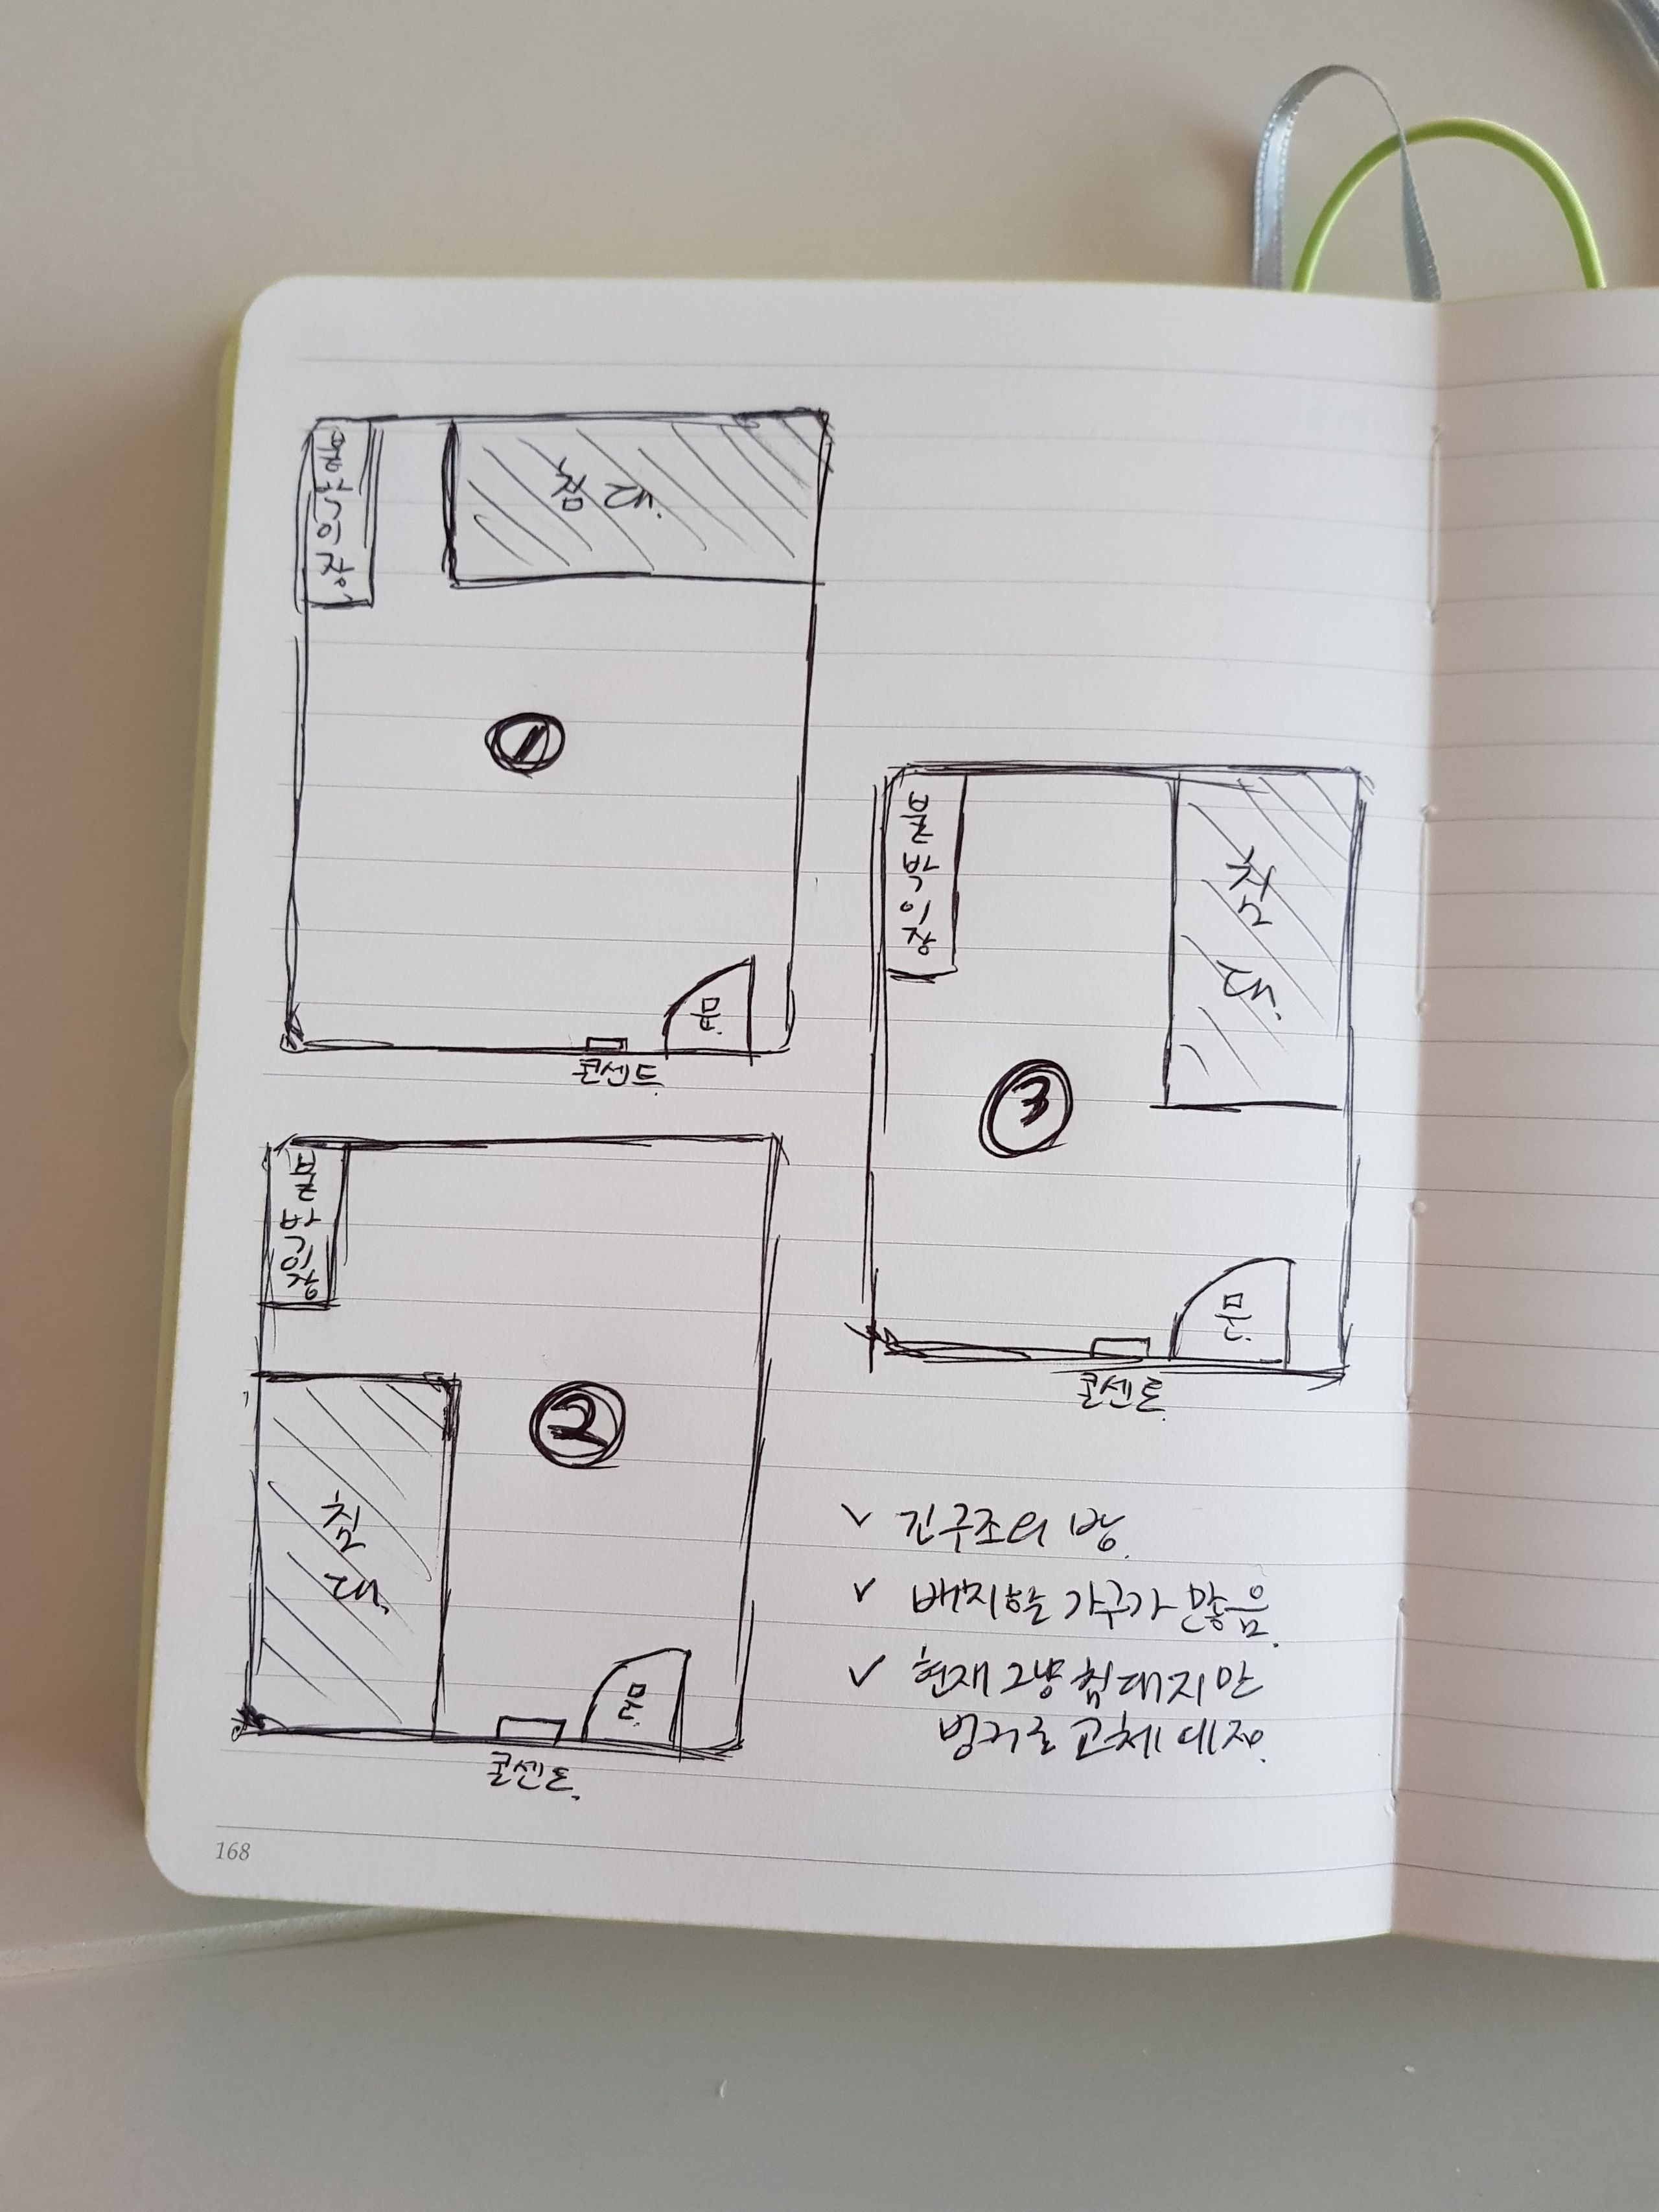 붙박이장.
침대.
1
문.
콘센트.
붙박이장
침대.
3
문.
콘센트.
붙박이장
2
침대.
문.
콘센트.
✓ 긴구조의 방.
✓ 배치하는 가구가 많음.
✓ 현재 그냥 침대지만
벙커로 교체 예정.
168